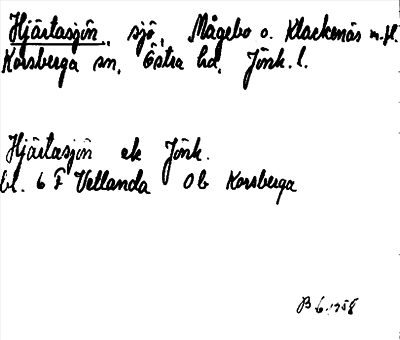 Hjärtasjön, sjö, Mågebo o. Klackenäs m.fl.
Korsberga sn, Östra hd, Jönk. l.
Hjärtasjön ek Jönk.
bl. 6 F Vetlanda Ob Korsberga
B 6.1958